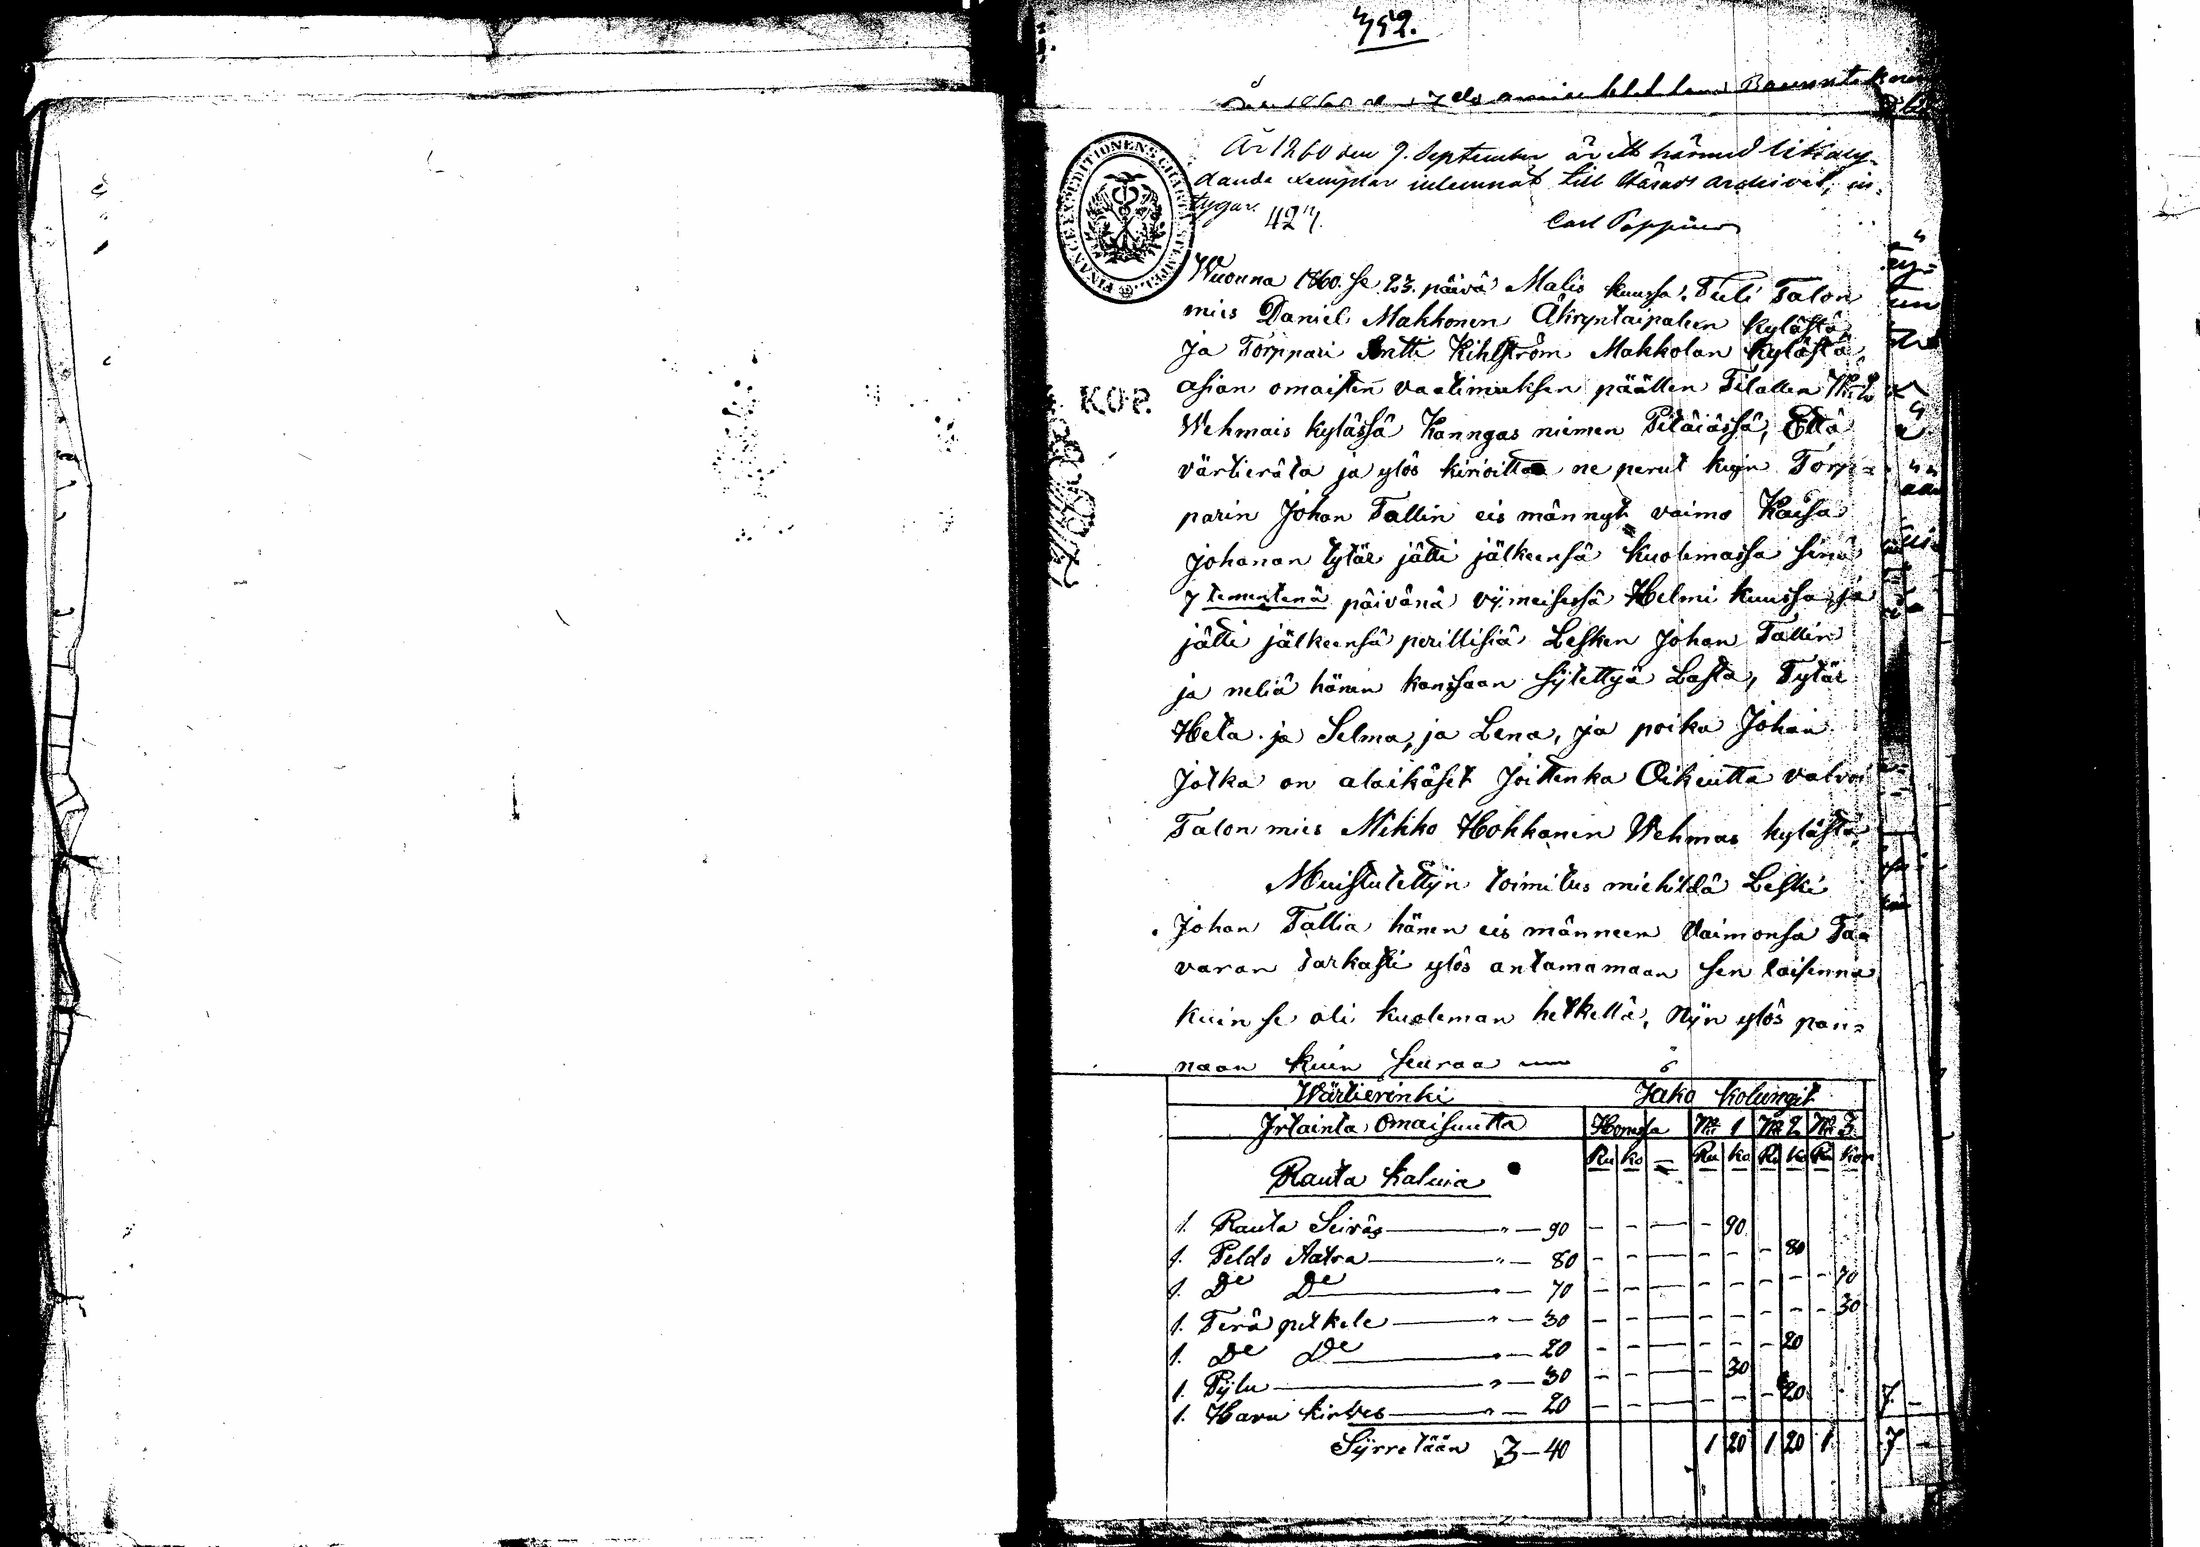 752.
År 1860 den 9. September är ett härmed lika ly-
dande exemplar inlemnat till Härads archivet, in-
tygar.
427.
Carl Poppius
FINANCE EXPEDITIONENS CHARTÆ STEMPEL.
KOP.
Wuonna 1860. se 23. päivä Malis kuussa. Tuli Talon
mies Daniel Makkonen Äkryntaipaleen kylästä
ja Torppari Antti Kihlström Makkolan kylästä,
asian omaisten vaatimuksen päällen Tilallen
Wehmais kylässä Kanngas niemen Pitäjässä, Että
värtierätä ja ylös kirioittaa ne perut kuin Torp=
parin Johan Tallin eis männyt vaimo Kaisa
Johanan tytär jätti jälkeensä kuolemassa sinä
7 tementenä päivänä vijmeisessä Helmi kuussa, ja
jätti jälkeensä perillisiä Lesken Johan Tallin
ja neliä hänen kanssaan sijtettyä Lasta, Tytär
Heta. ja Selma, ja Lena, ja poika Johan
Jotka on alaikäset Joittenka Oikeutta valvoi
Talon mies Mikko Hokkanen Wehmas kylästä,
Muistutettijn toimitus miehildä Leski
Johan Tallia hänen eis männeen Vaimonsa Ta=
varan tarkasti ylös antamamaan sen laisenna
kuin se oli kuoleman hetkellä, Nijn ylös pan=
naan kuin seuraa
Wärtierinki Jako kolungit
Irtainta Omaisuutta Homssa No 1 No 2 No 3
Ru ko Ru ko Ru ko Ru kop
Rauta kaluia
1. Rauta Seiväs " — 90 90
1. Peldo Aatra " — 80 80
1. Do Do " — 70 70
1. Terä petkele " — 30 30
1. Do Do " — 20 20
1. Pijlu " — 30 30
1. Hara kirves " — 20 20
Sijrretään 3 — 40 1 20 1 20 1